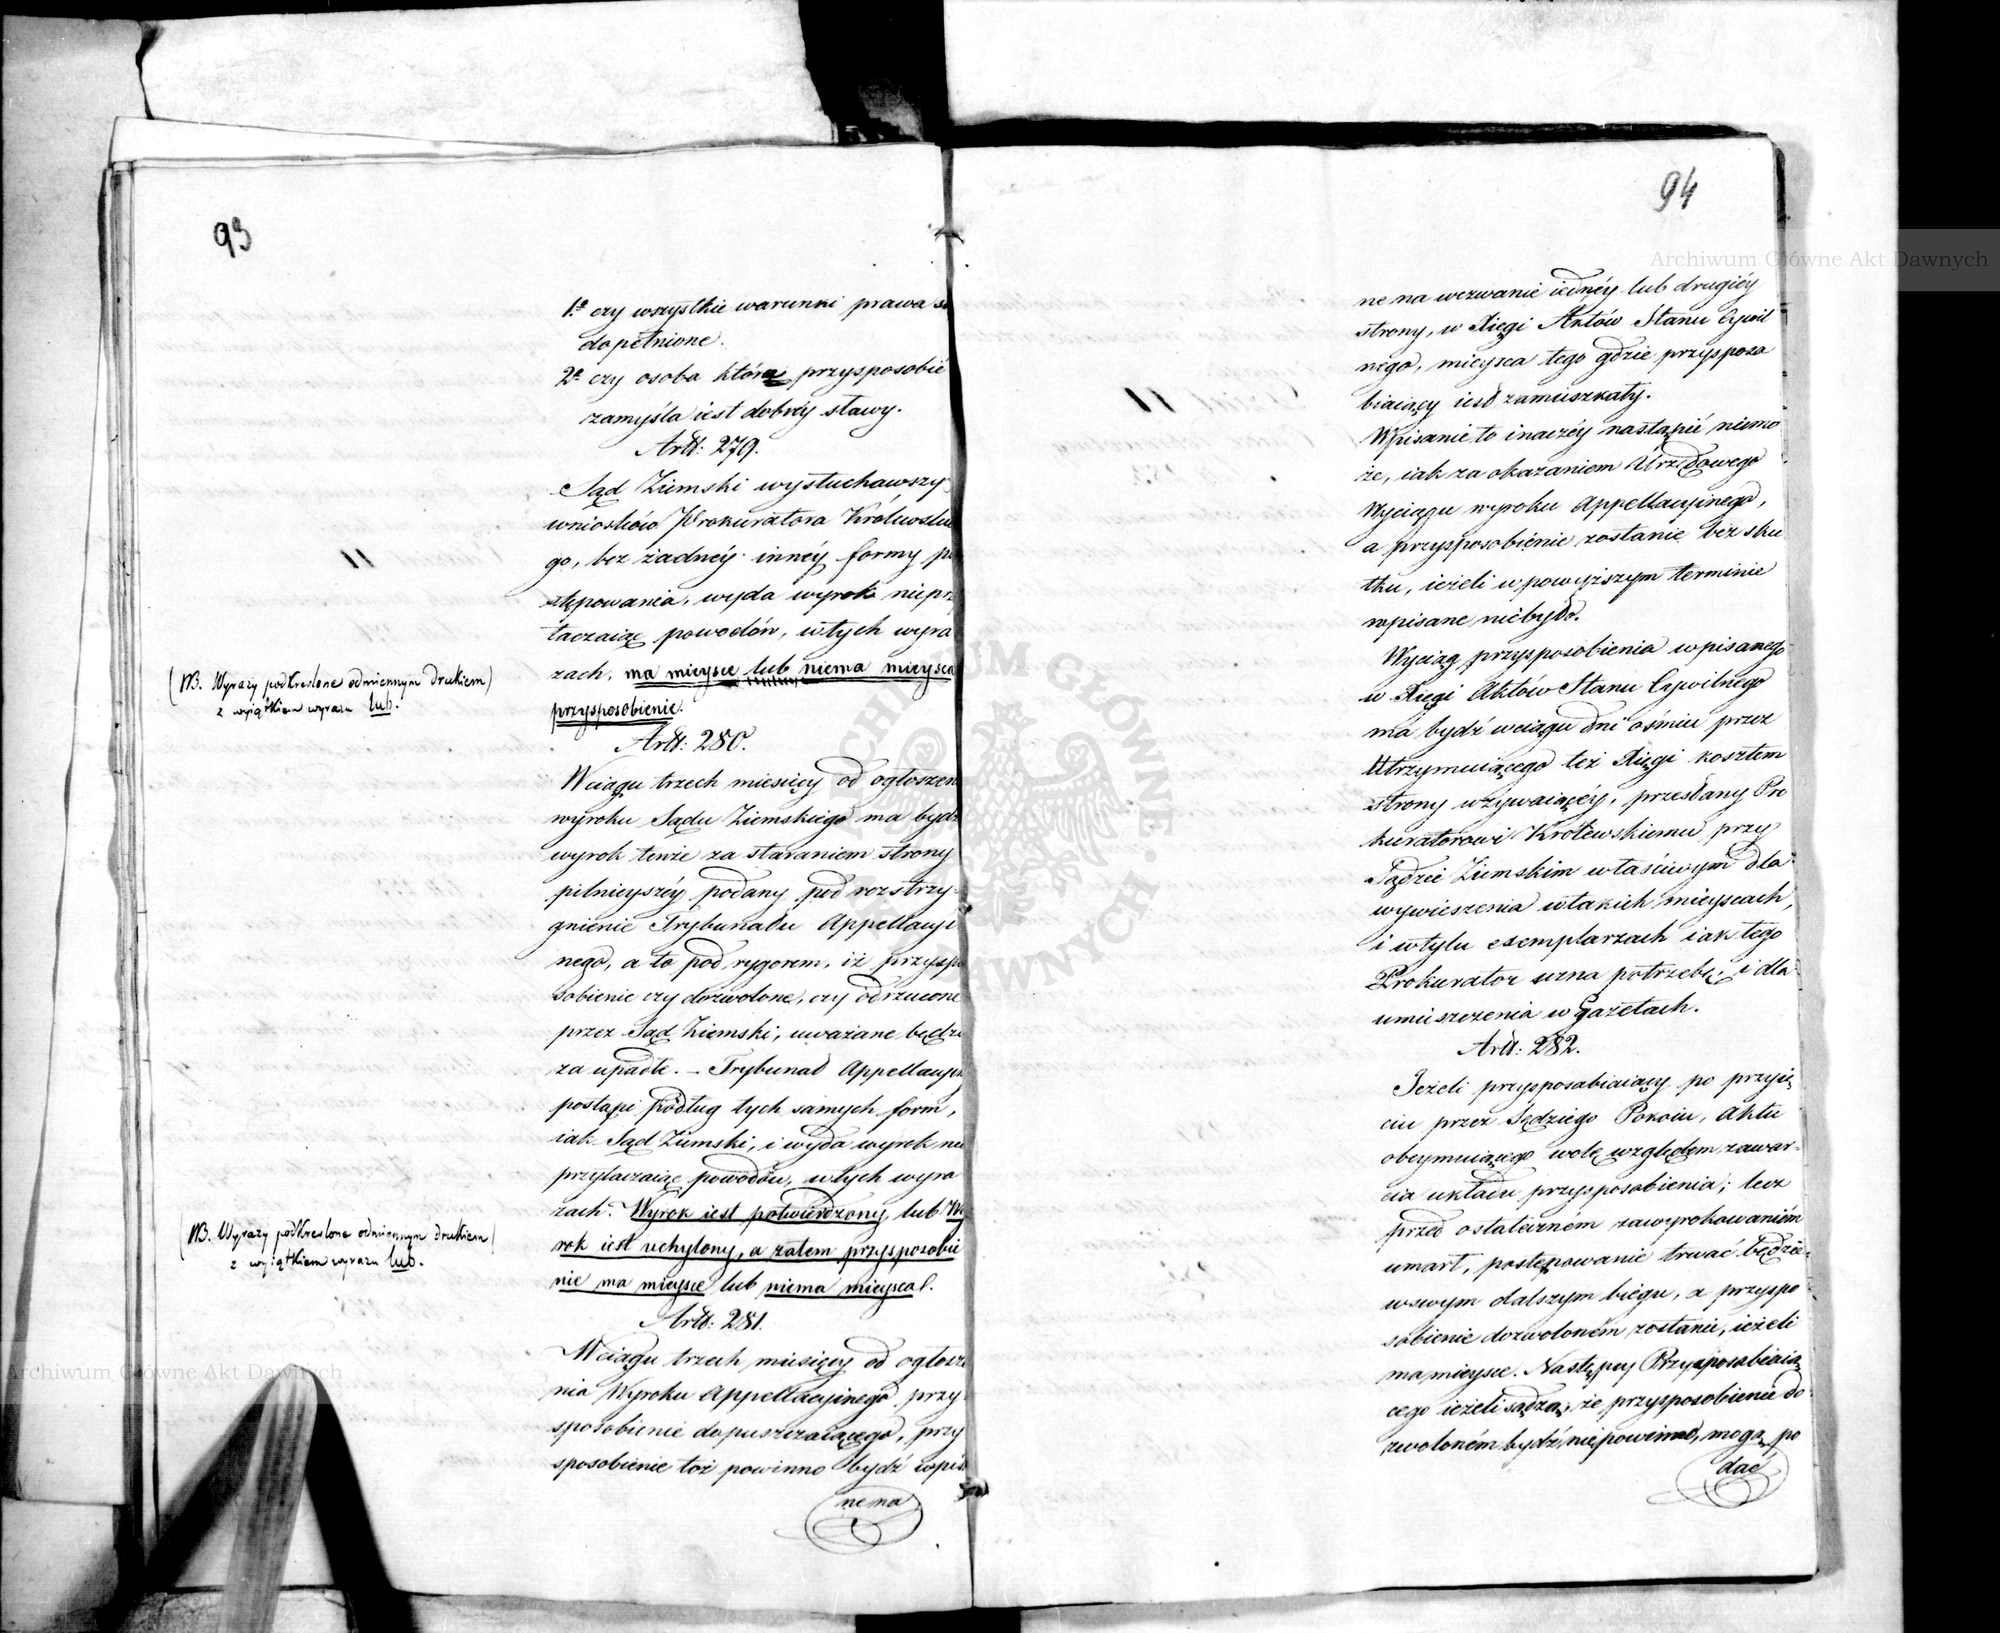 93
1.º czy wszystkie warunki prawa są
dopełnione.
2.º czy osoba która przysposobić
zamyśla iest dobréy sławy.
Artt: 279.
Sąd Ziemski wysłuchawszy
wniosków Prokuratora Królewskie
go, bez żadnéy innéy formy po
stępowania, wyda wyrok nieprzy
taczaiąc powodów, w tych wyra
zach, ma mieysce lub niema mieysca
przysposobienie.
(NB. Wyrazy podkreslone odmiennym drukiem)
z wyiątkiem wyrazu lub.
Artt: 280.
W ciągu trzech miesięcy od ogłoszenia
wyroku Sądu Ziemskiego ma bydź
wyrok tenże za staraniem strony
pilnieyszéy podany pod rozstrzy-
gnienie Trybunału Appellacyi
nego, a to pod rygorem, iż przyspo
sobienie czy dozwolone, czy odrzucone
przez Sąd Ziemski, uważane będzie
za upadłe. – Trybunał Appellacyiny
postąpi podług tych samych form,
iak Sąd Ziemski, i wyda wyrok nie
przytaczaiąc powodów, w tych wyra
zach: Wyrok iest potwierdzony, lub Wy
rok iest uchylony, a zatem przysposobie
nie ma mieysce lub niema mieysca.
(NB. Wyrazy podkreslone odmiennym drukiem)
z wyiątkiem wyrazu lub.
Artt: 281.
W ciągu trzech miesięcy od ogłosze
nia Wyroku Appellacyinego przy-
sposobienie dopuszczaiącego, przy
sposobienie toż powinno bydź wpisa
ne na
94
ne na wezwanie iednéy lub drugiéy
strony, w Xięgi Aktów Stanu Cywil
nego, mieysca tego gdzie przysposa
biaiący iest zamieszkały.
Wpisanie to inaczéy nastąpić niemo
że, iak za okazaniem Urzędowego
Wyciągu wyroku Appellacyinego,
a przysposobienie zostanie bez sku
tku, ieżeli w powyższym terminie
wpisane niebyło.
Wyciąg przysposobienia wpisanego
w Xięgi Aktów Stanu Cywilnego
ma bydź w ciągu dni ośmiu przez
Utrzymuiącego też Xięgi kosztem
strony wzywaiącéy, przesłany Pro
kuratorowi Królewskiemu przy
Sądzie Ziemskim właściwym dla
wywieszenia w takich mieyscach,
i w tylu exemplarzach iak tego
Prokurator uzna potrzebę, i dla
umieszczenia w gazetach.
Artt: 282.
Jeżeli przysposabiaiący po przyię
ciu przez Sędziego Pokoiu, Aktu
obeymuiącego wolę względem zawar-
cia układu przysposobienia; lecz
przed ostateczném zawyrokowaniem
umarł, postępowanie trwać będzie
w swym dalszym biegu, a przyspo
sobienie dozwoloném zostanie, ieżeli
ma mieysce. Następcy Przysposabiaią
cego ieżeli sądzą, że przysposobienie do
zwoloném bydź niepowinno, mogą po
dać
Archiwum Główne Akt Dawnych